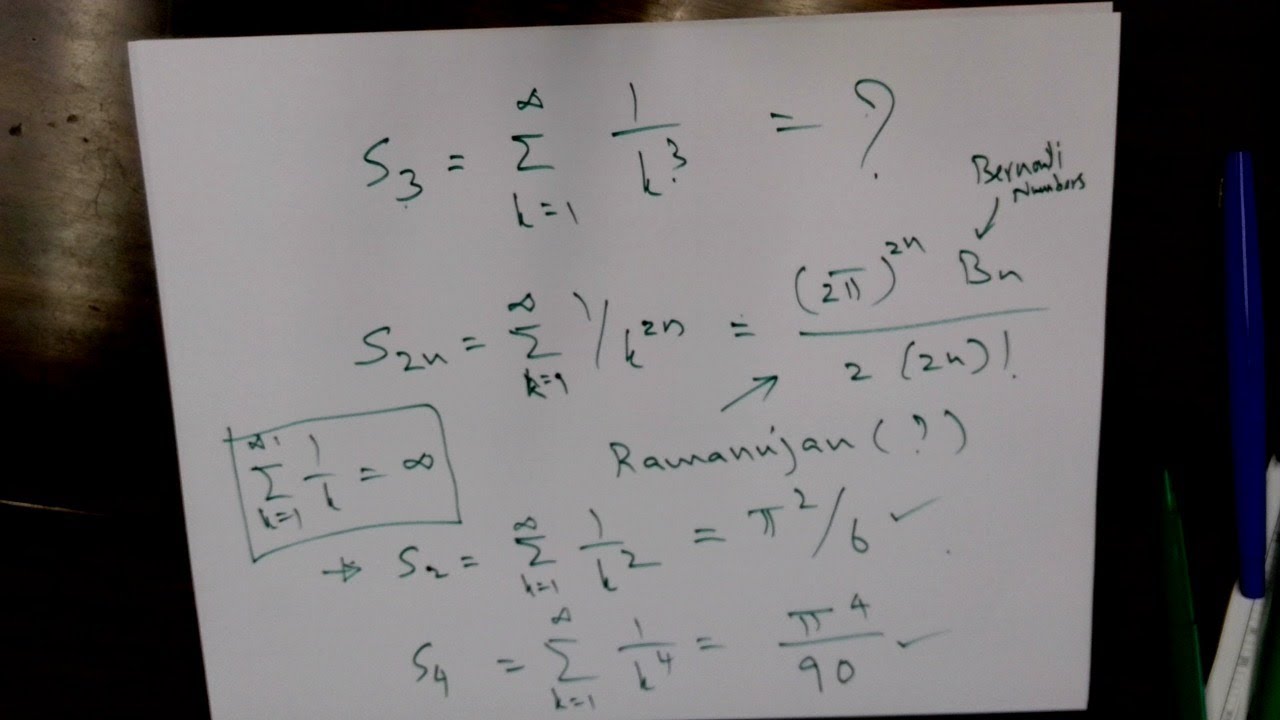 S₃ = ∑_{k=1}^{∞} 1/k³ = ?
Bernowli
Numbers
S₂ₙ = ∑_{k=1}^{∞} 1/k²ⁿ = (2π)²ⁿ Bn / 2 (2n)!
Ramanujan (?)
∑_{k=1}^{∞} 1/k = ∞
→ S₂ = ∑_{k=1}^{∞} 1/k² = π²/6 ✓
S₄ = ∑_{k=1}^{∞} 1/k⁴ = π⁴/90 ✓